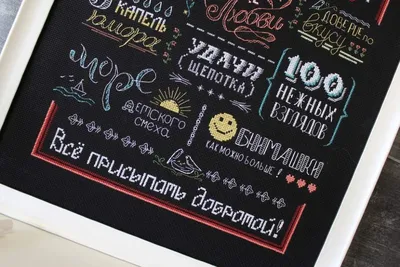 КАПЕЛЬ
ЮМОРА
Любви
ДОВЕРИЕ ПО
ВКУСУ
УДАЧИ
ЩЕПОТКА
100
НЕЖНЫХ
ВЗГЛЯДОВ
Море
ДЕТСКОГО
СМЕХА
ОБНИМАШКИ
(КАК МОЖНО БОЛЬШЕ)
Всё присыпать добротой!